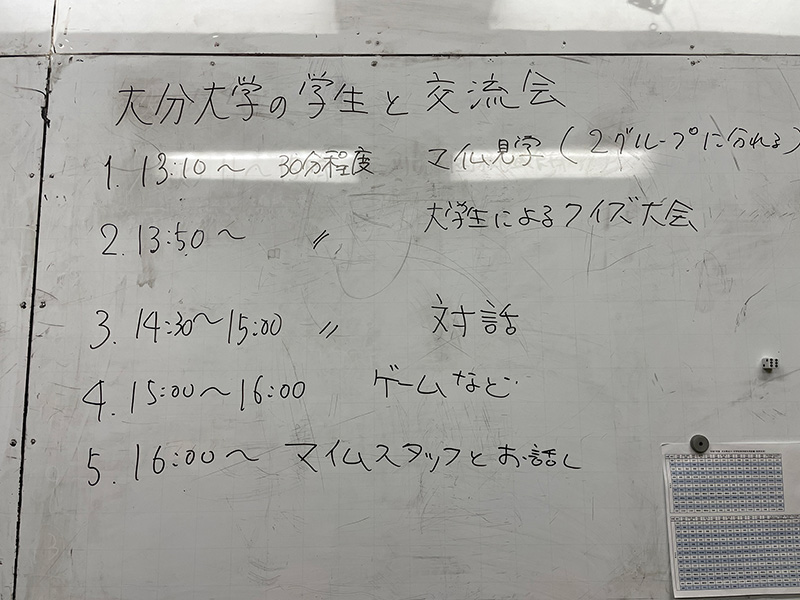 大分大学の学生と交流会
1. 13:10～ 30分程度 マイム見学(2グループに分れる)
2. 13:50～ 〃 大学生によるクイズ大会
3. 14:30～15:00 〃 対話
4. 15:00～16:00 ゲームなど
5. 16:00～ マイムスタッフとお話し